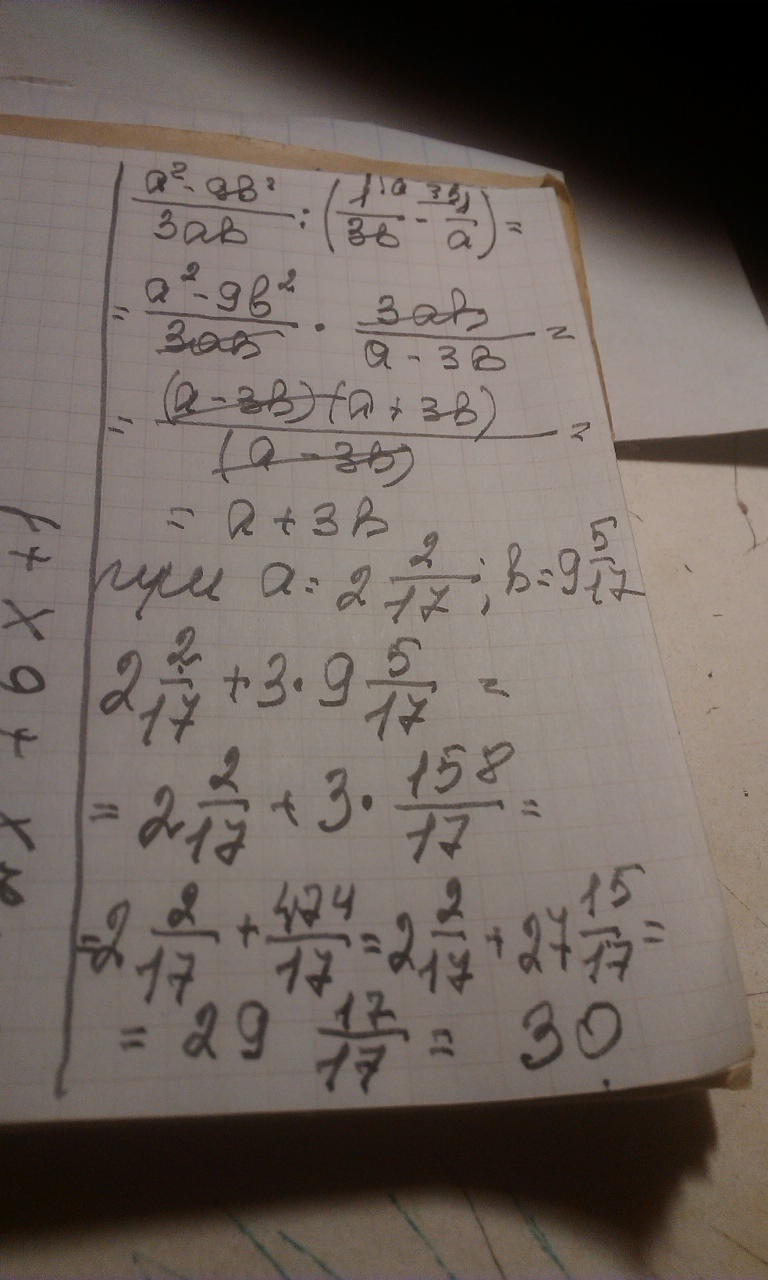 (a² - 9b²)/(3ab) : (1/(3b) - 1/a) =
= (a² - 9b²)/(3ab) · (3ab)/(a - 3b) =
= ((a - 3b)(a + 3b))/((a - 3b)) =
= a + 3b
при a = 2 2/17; b = 9 5/17
2 2/17 + 3 · 9 5/17 =
= 2 2/17 + 3 · 158/17 =
= 2 2/17 + 474/17 = 2 2/17 + 27 15/17 =
= 29 17/17 = 30.
1 + x 9 + x